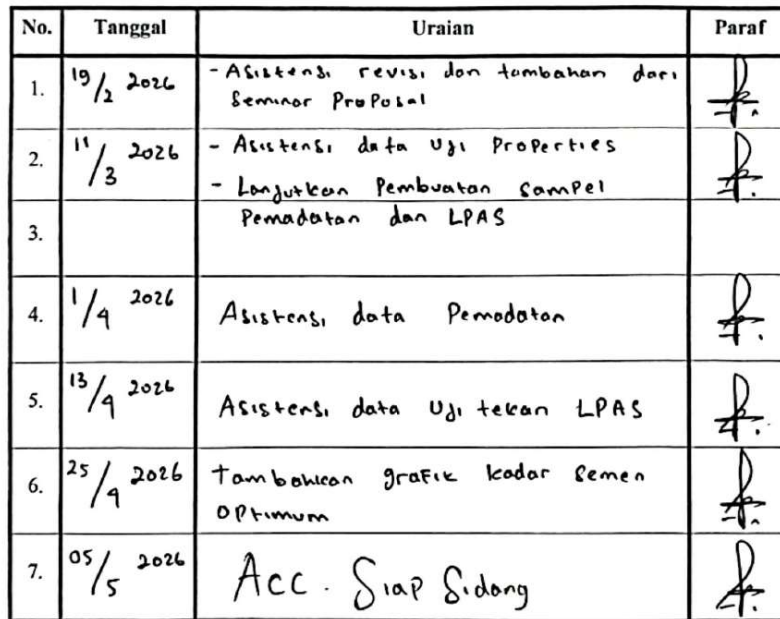 No. Tanggal Uraian Paraf
1. 19/2 2026 - Asistensi revisi dan tambahan dari
Seminar Proposal
2. 11/3 2026 - Asistensi data Uji Properties
- Lanjutkan Pembuatan Sampel
3. Pemadatan dan LPAS
4. 1/4 2026 Asistensi data Pemadatan
5. 13/4 2026 Asistensi data Uji tekan LPAS
6. 25/4 2026 Tambahkan grafik kadar Semen
Optimum
7. 05/5 2026 Acc. Siap Sidang